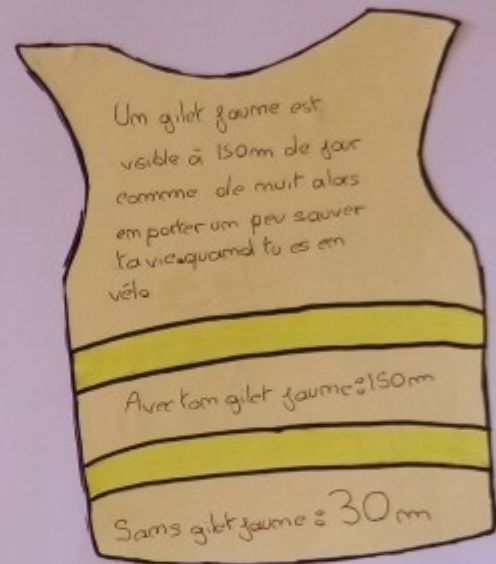 Un gilet jaune est
visible à 150m de jour
comme de nuit alors
en porter un peu sauver
ta vie quand tu es en
vélo
Avec ton gilet jaune : 150m
Sans gilet jaune : 30m